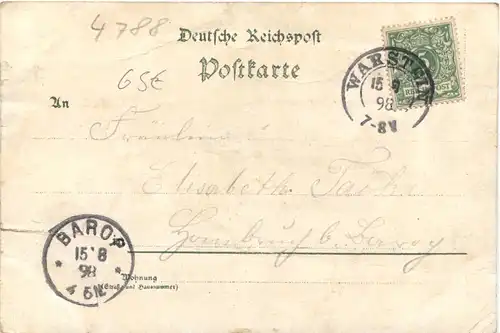 4788
Deutsche Reichspost
Postkarte
65€
WARSTEIN
15 8
98
7-8V
An
Fräulein
Elisabeth
Hombruch b. Barop
BAROP
15 8
98
Wohnung
(Straße und Hausnummer)